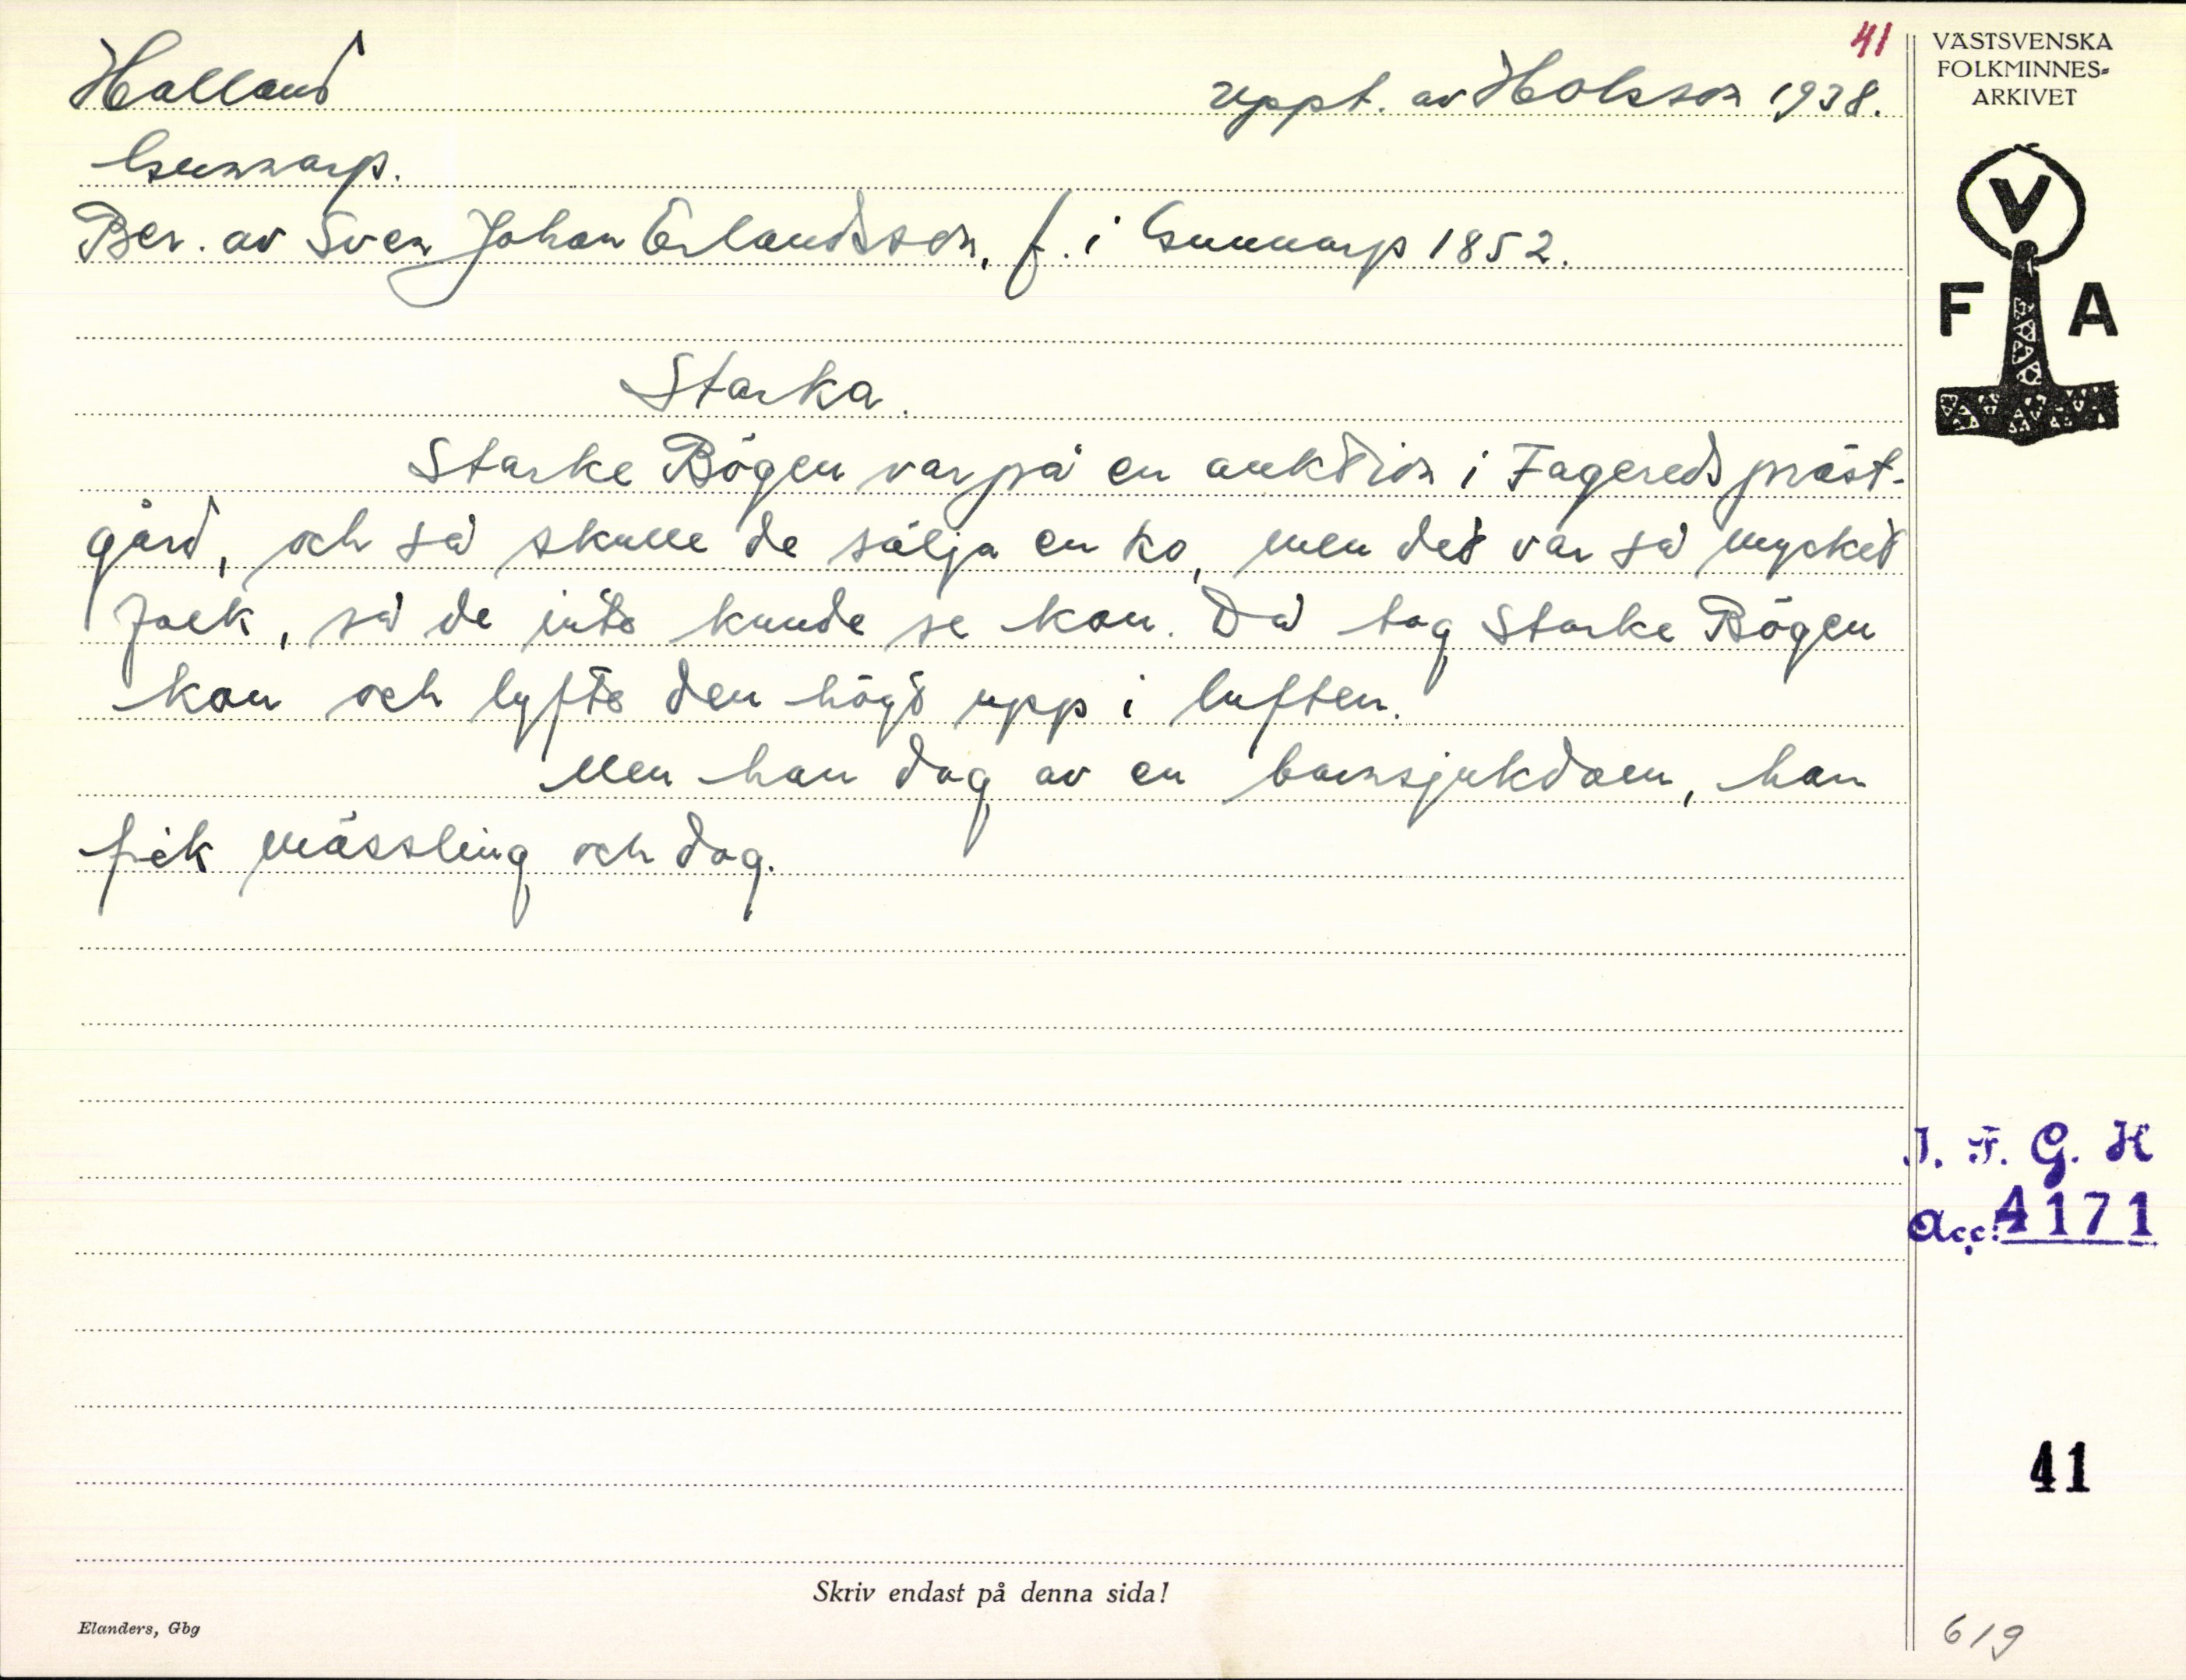 41
Halland
uppt. av Holsson 1938.
Gunnarp.
Ber. av Sven Johan Erlandsson, f. i Gunnarp 1852.
Starka.
Starke Bögen var på en auktion i Fagereds präst-
gård, och så skulle de sälja en ko, men det var så mycket
folk, så de inte kunde se kon. Då tog Starke Bögen
kon och lyfte den högt upp i luften.
Men han dog av en barnsjukdom, han
fick mässling och dog.
VÄSTSVENSKA
FOLKMINNES-
ARKIVET
V
F A
I. F. G. H
Acc. 4171
41
Skriv endast på denna sida!
Elanders, Gbg
619